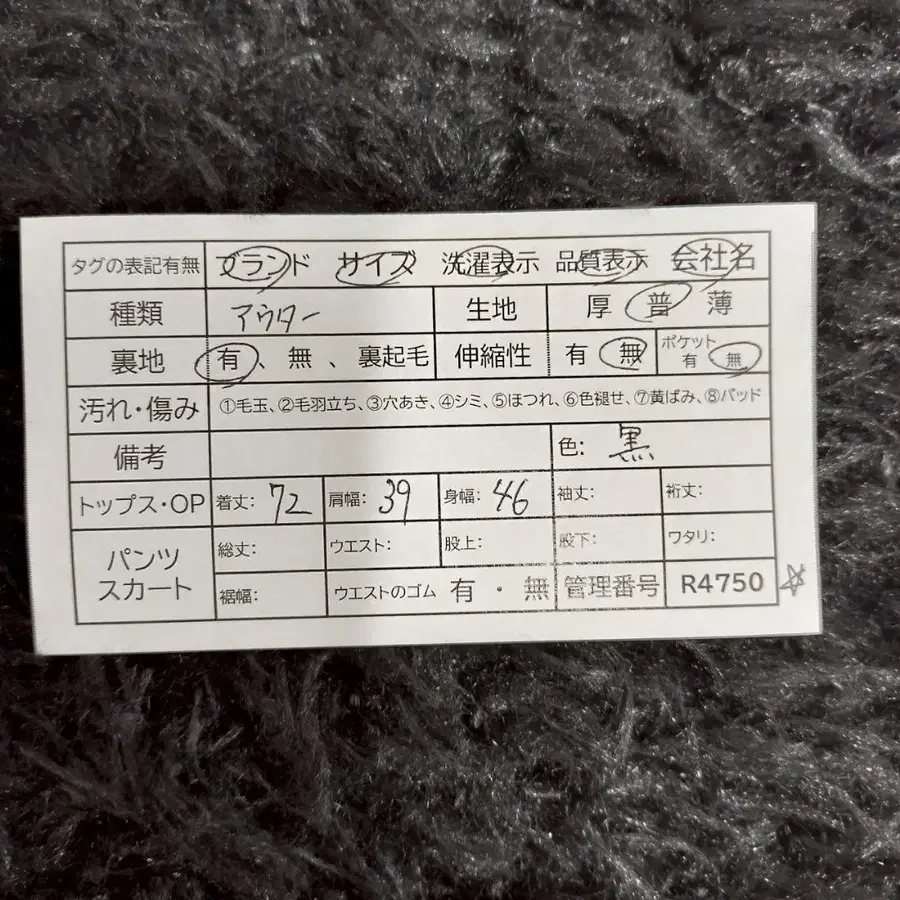 タグの表記有無 ブランド サイズ 洗濯表示 品質表示 会社名
種類 アウター 生地 厚 普 薄
裏地 有、無、裏起毛 伸縮性 有 無 ポケット 有 無
汚れ・傷み ①毛玉、②毛羽立ち、③穴あき、④シミ、⑤ほつれ、⑥色褪せ、⑦黄ばみ、⑧パッド
備考 色: 黒
トップス・OP 着丈: 72 肩幅: 39 身幅: 46 袖丈: 裄丈:
パンツ スカート 総丈: ウエスト: 股上: 股下: ワタリ:
裾幅: ウエストのゴム 有・無 管理番号 R4750 ☆